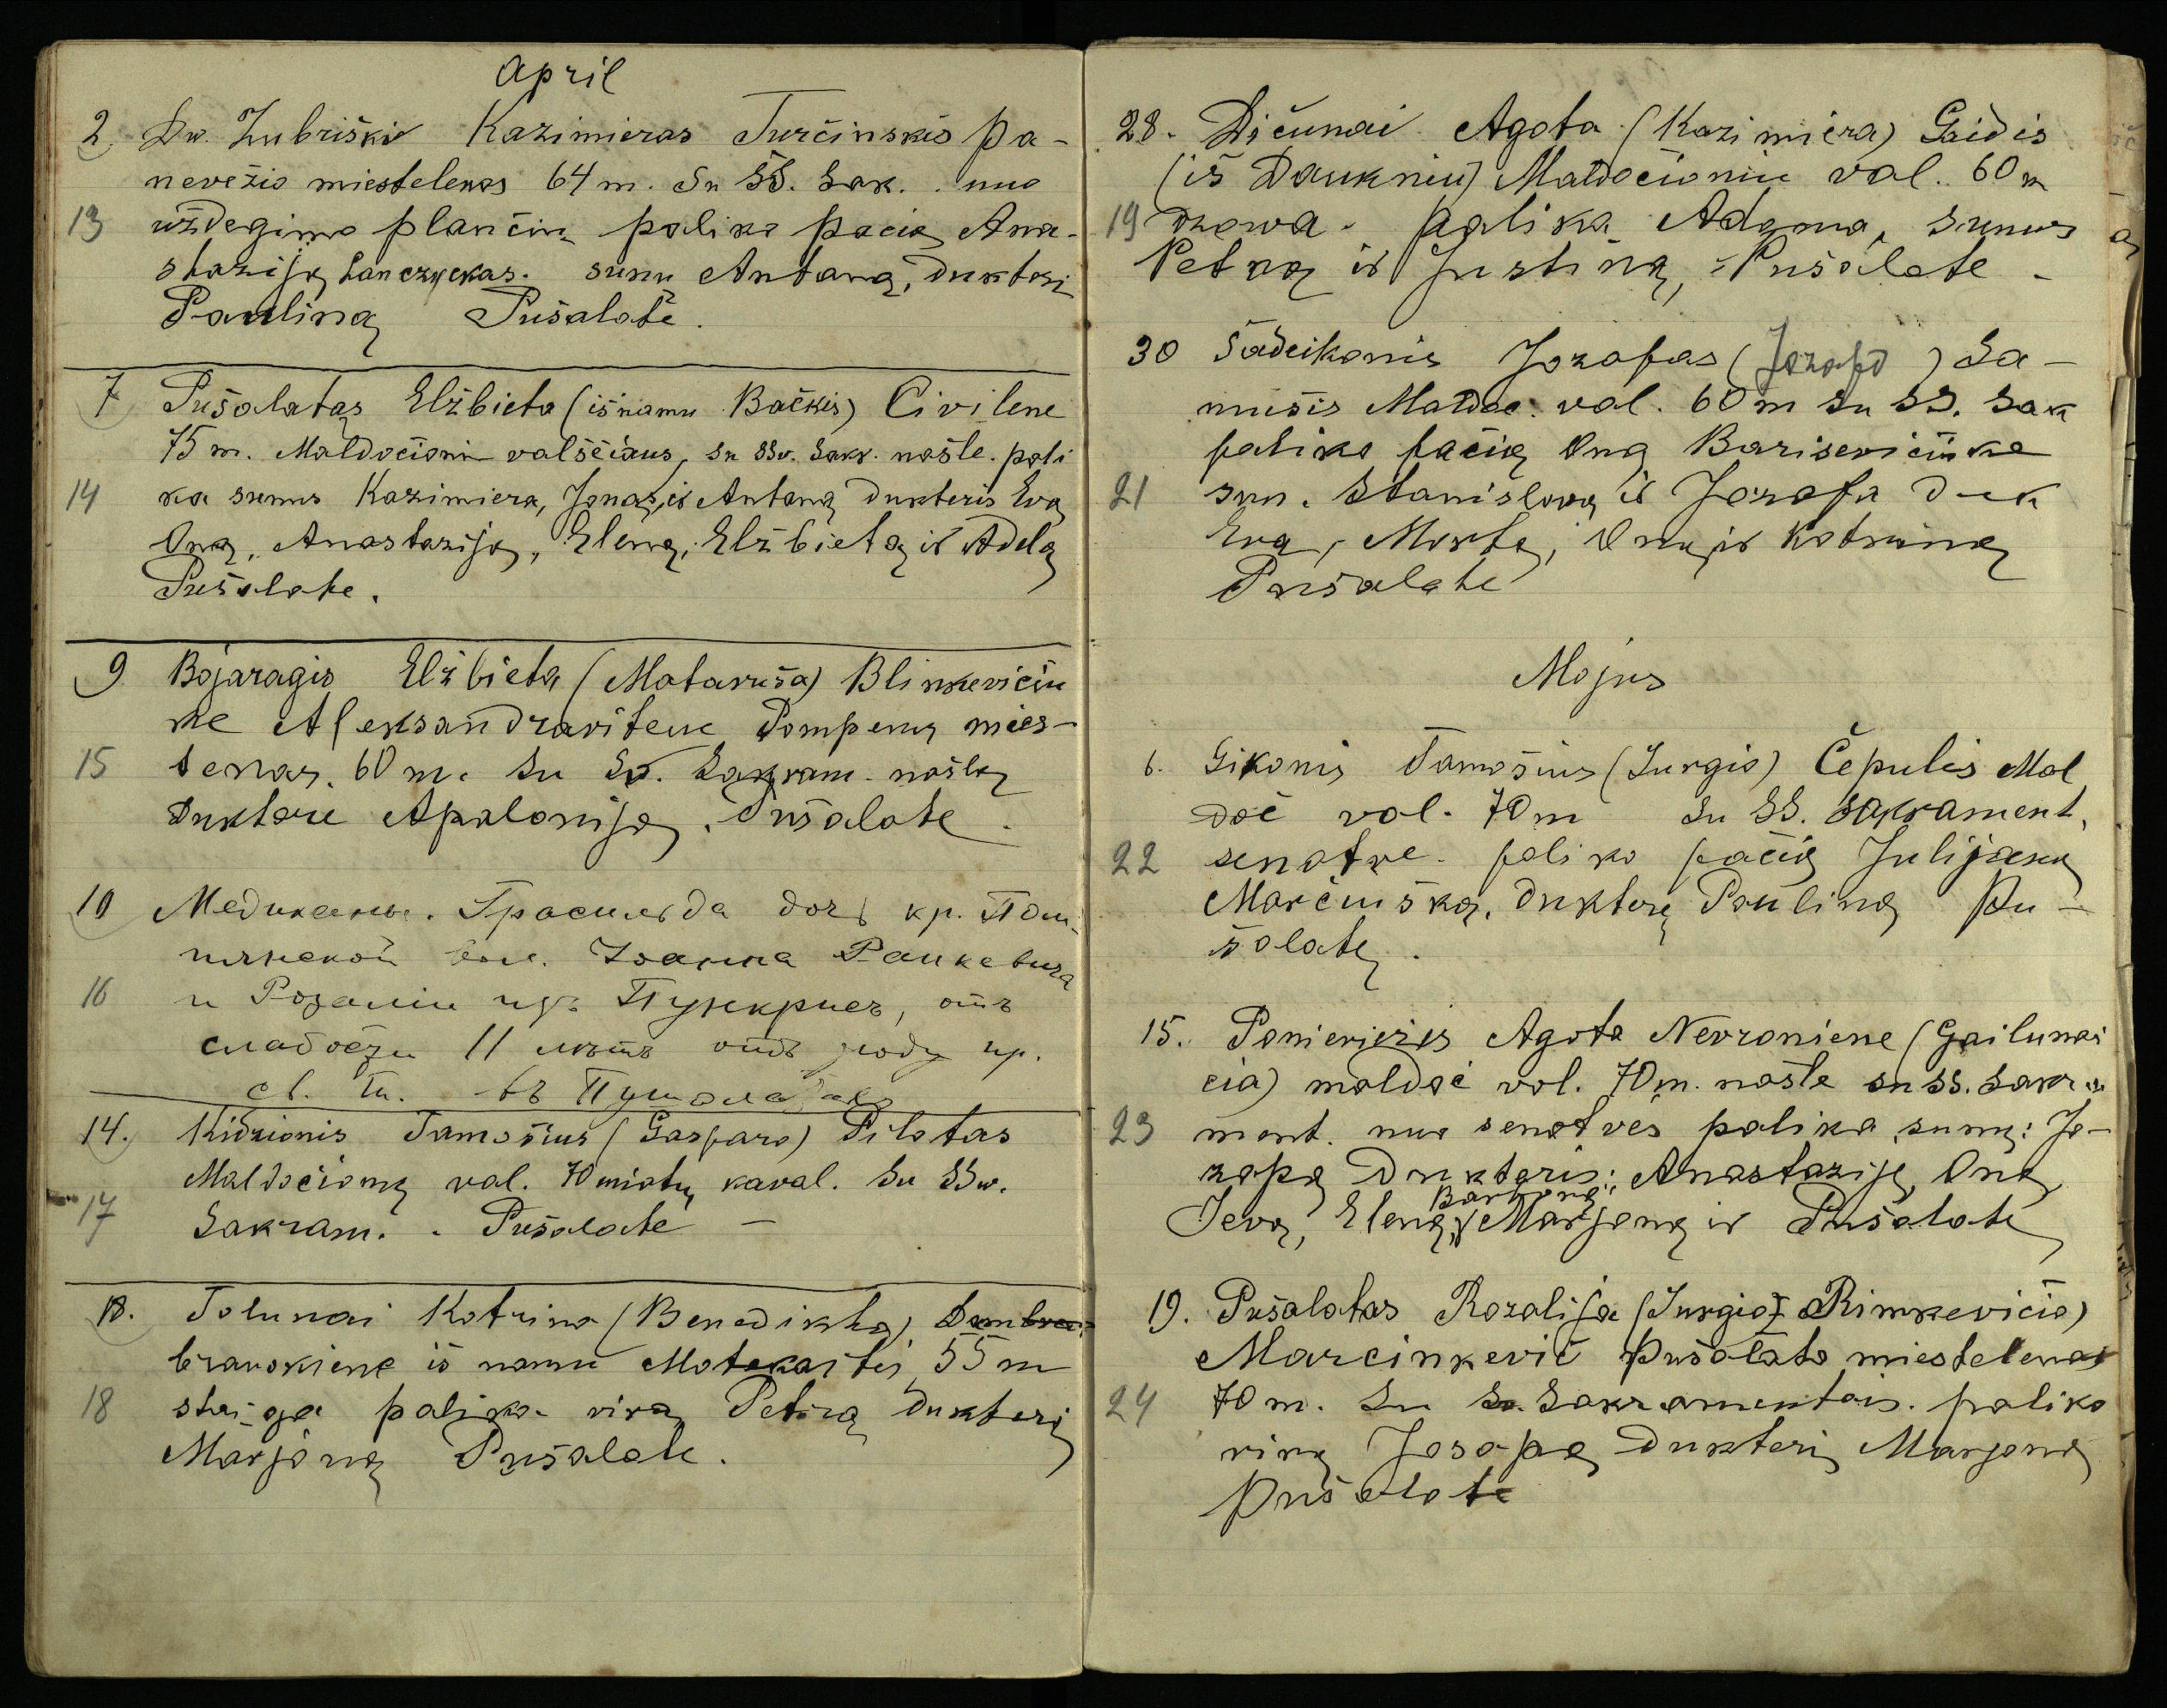 April
2 Dw. Zubriški Kazimieras Turčinskis Pa-
nevežio miestelenas 64 m. Su SS. Sak. nuo
13 uždegimo plančiu paliko pacią Ana-
staziją sunu Antaną, dukteri
Pauliną Pušalate.
7 Pušalatas Elžbieta (iš namu Bačkis) Civilene
75 m. Maldočioniu valščiaus, su SSv. Sakr. našle. pali
14 ka sunus Kazimiera, Joną, ir Antaną dukteris Evą
Oną, Anastaziją, Eleną, Elžbietą ir Adelą
Pušalate.
9 Bajaragis Elžbieta (Matauša) Blinkevičiu
ke Aleksandravitene Pompenų mies-
15 tenas. 60 m. Su Sv. Sakram. našlę
Duktere Apaloniją. Pušalate.
10 Медикание. Грасильда дочь кр. Пом-
пянской вол. Іоанна Ранкевича
16 и Розаліи изъ Пункрисъ, отъ
слабости 11 лѣтъ отъ роду пр.
св. т. въ Пушолатахъ
14. Kidzionis Tamošius (Gasparo) Pilotas
Maldočionų val. 70 miatų kaval. Su SSw.
17 Sakram. . Pušalate –
18. Tolunai Katrina (Benedikta) Dumbra
brauskiene iš namu Motekaitis 55 m
18 staiga paliko virą Petrą dukterį
Marjoną Pušalate.
28. Dičunai Agota (Kazimiera) Gaidis
(iš Daukniu) Maldočioniu val. 60 m
19 džowa. palika Adomą, sunus
Petrą ir Justiną, Pušalate –
30 Sadeikonis Jozapas (Jozapo) Sa-
mušis Maldoc. val. 60 m Su SS. Sak
paliko pačią Oną Barisevičiuke
21 sun. Stanislovą ir Jozafa duk
Evą, Mortą, Oną ir Katriną
Pušalate
Majus
6. Gikonis Tamošius (Jurgio) Čepulis Mal
doč val. 70 m Su SS. Sakrament,
22 senatve. paliko pačią Julijaną
Marčiušką, dukterę Pauliną Pu-
šolatę.
15. Panieviežis Agota Nevroniene (Gailunai
cia) maldoč vol. 70 m. našle su SS. Sakra
23 ment. nuo senatvės palika sunų: Jo-
zapą Dukteris: Anastaziję, Oną,
Barborą,
Jevą, Eleną, Marjoną ir Pušalate
19. Pušalatas Rozalija (Jurgio Rimkevičio)
Marcinkevič Pušalato miestelenas
24 70 m. Su Sv. Sakramentais. paliko
virą Josapą dukterį Marjoną
Pušolate